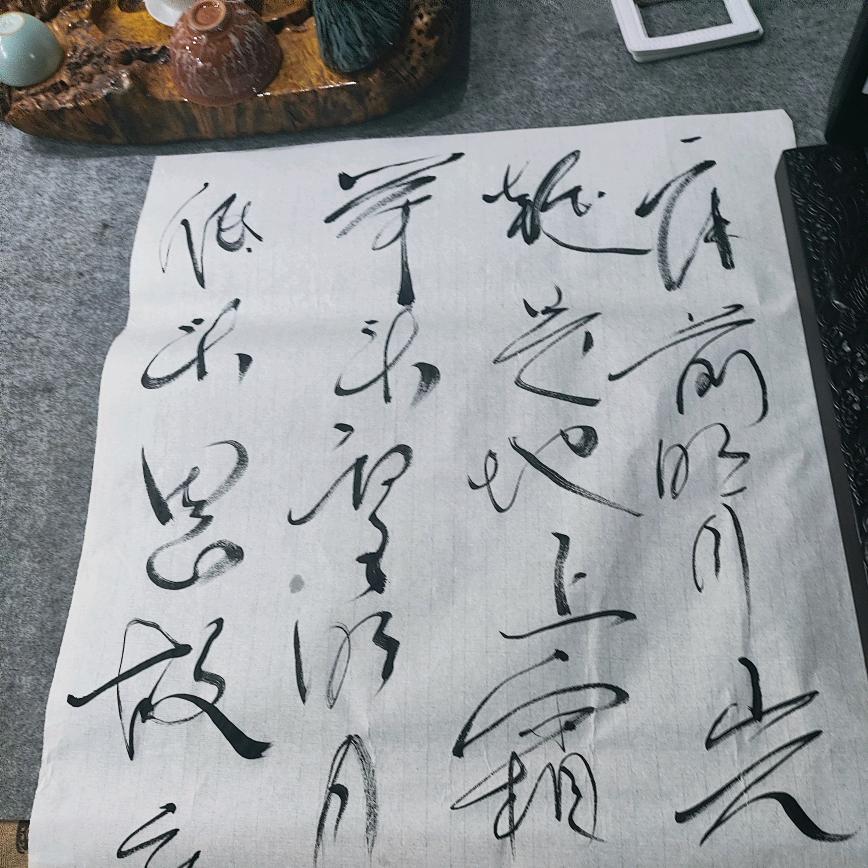 床前明月光
疑是地上霜
举头望明月
低头思故